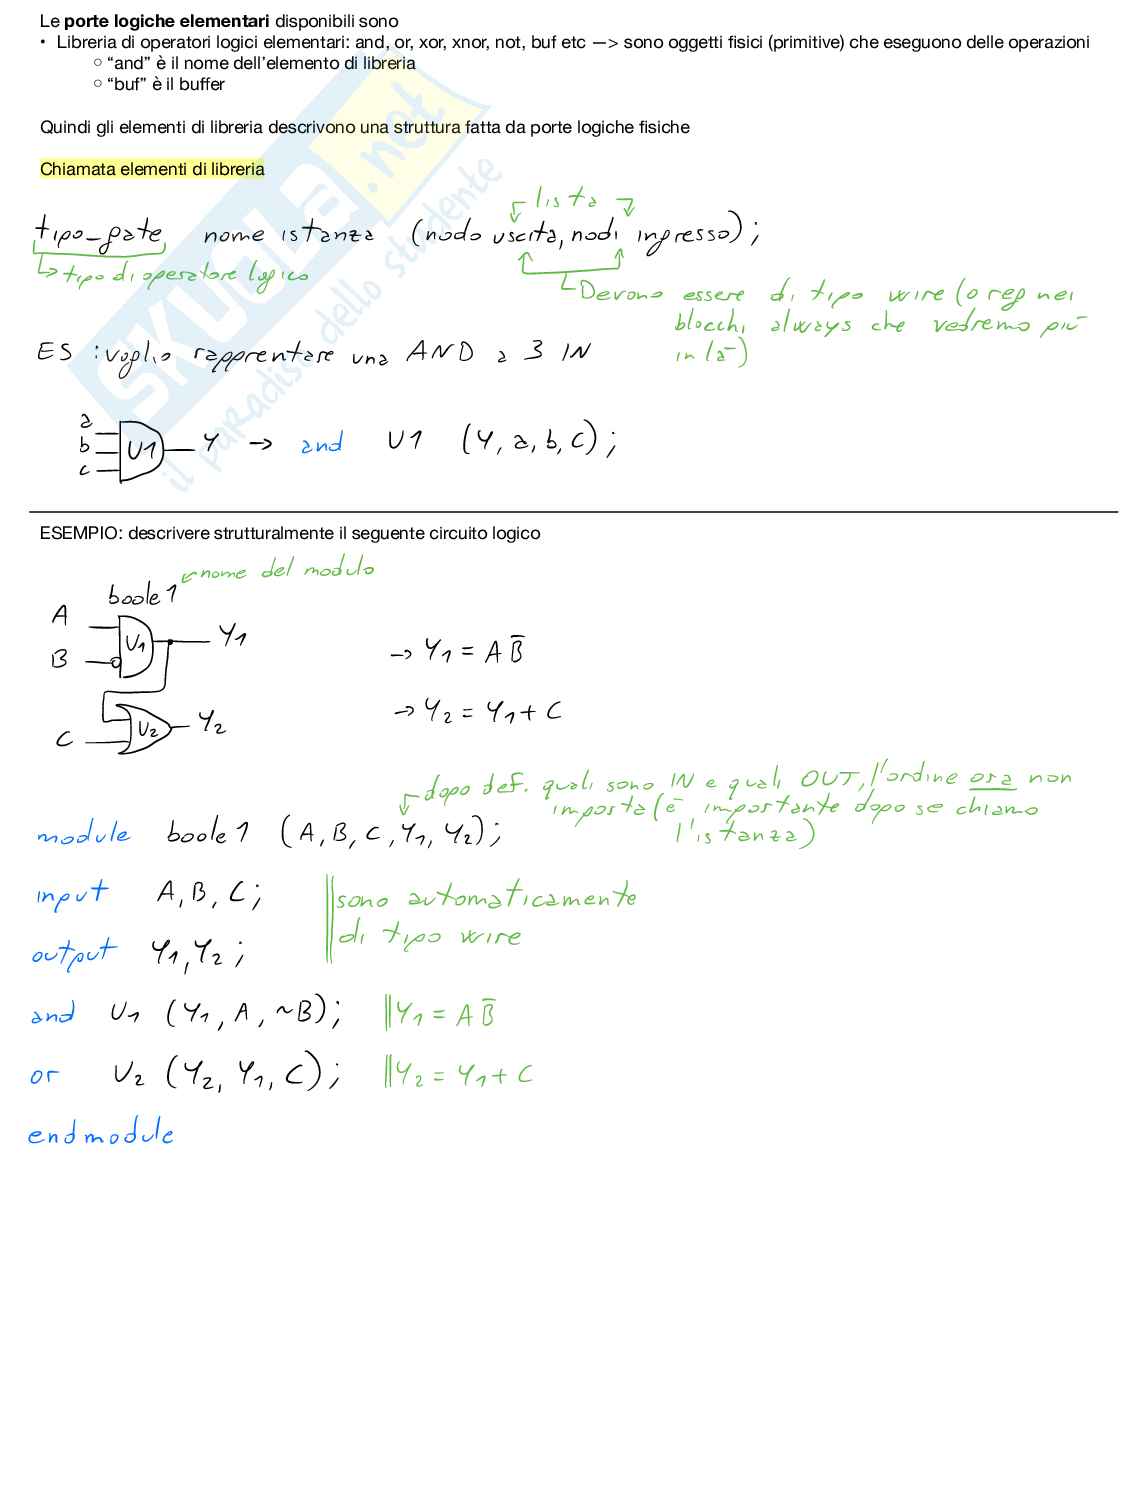 Le porte logiche elementari disponibili sono
• Libreria di operatori logici elementari: and, or, xor, xnor, not, buf etc —> sono oggetti fisici (primitive) che eseguono delle operazioni
○ “and” è il nome dell’elemento di libreria
○ “buf” è il buffer
Quindi gli elementi di libreria descrivono una struttura fatta da porte logiche fisiche
Chiamata elementi di libreria
lista
tipo_gate nome istanza (nodo uscita, nodi ingresso);
↳ tipo di operatore logico
Devono essere di tipo wire (o reg nei
blocchi always che vedremo più
in là)
ES: voglio rapprentare una AND a 3 IN
a
b
c
U1
Y → and U1 (Y, a, b, c);
SKUOLA.net
il paradiso dello studente
ESEMPIO: descrivere strutturalmente il seguente circuito logico
boole1 ← nome del modulo
A
U1
Y1
B
→ Y1 = A B̅
U2
Y2
→ Y2 = Y1 + C
C
dopo def. quali sono IN e quali OUT, l'ordine ora non
importa (è importante dopo se chiamo
l'istanza)
module boole1 (A, B, C, Y1, Y2);
input A, B, C;
output Y1, Y2;
|| sono automaticamente
di tipo wire
and U1 (Y1, A, ~B); || Y1 = A B̅
or U2 (Y2, Y1, C); || Y2 = Y1 + C
endmodule